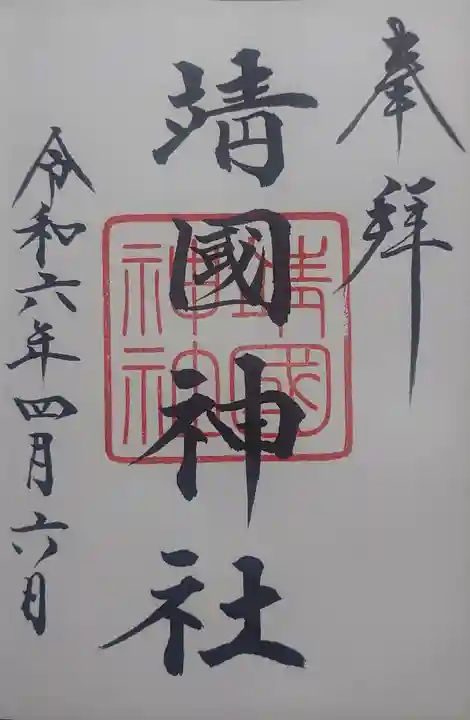 奉拝
靖國神社
靖國
神社
令和六年四月六日